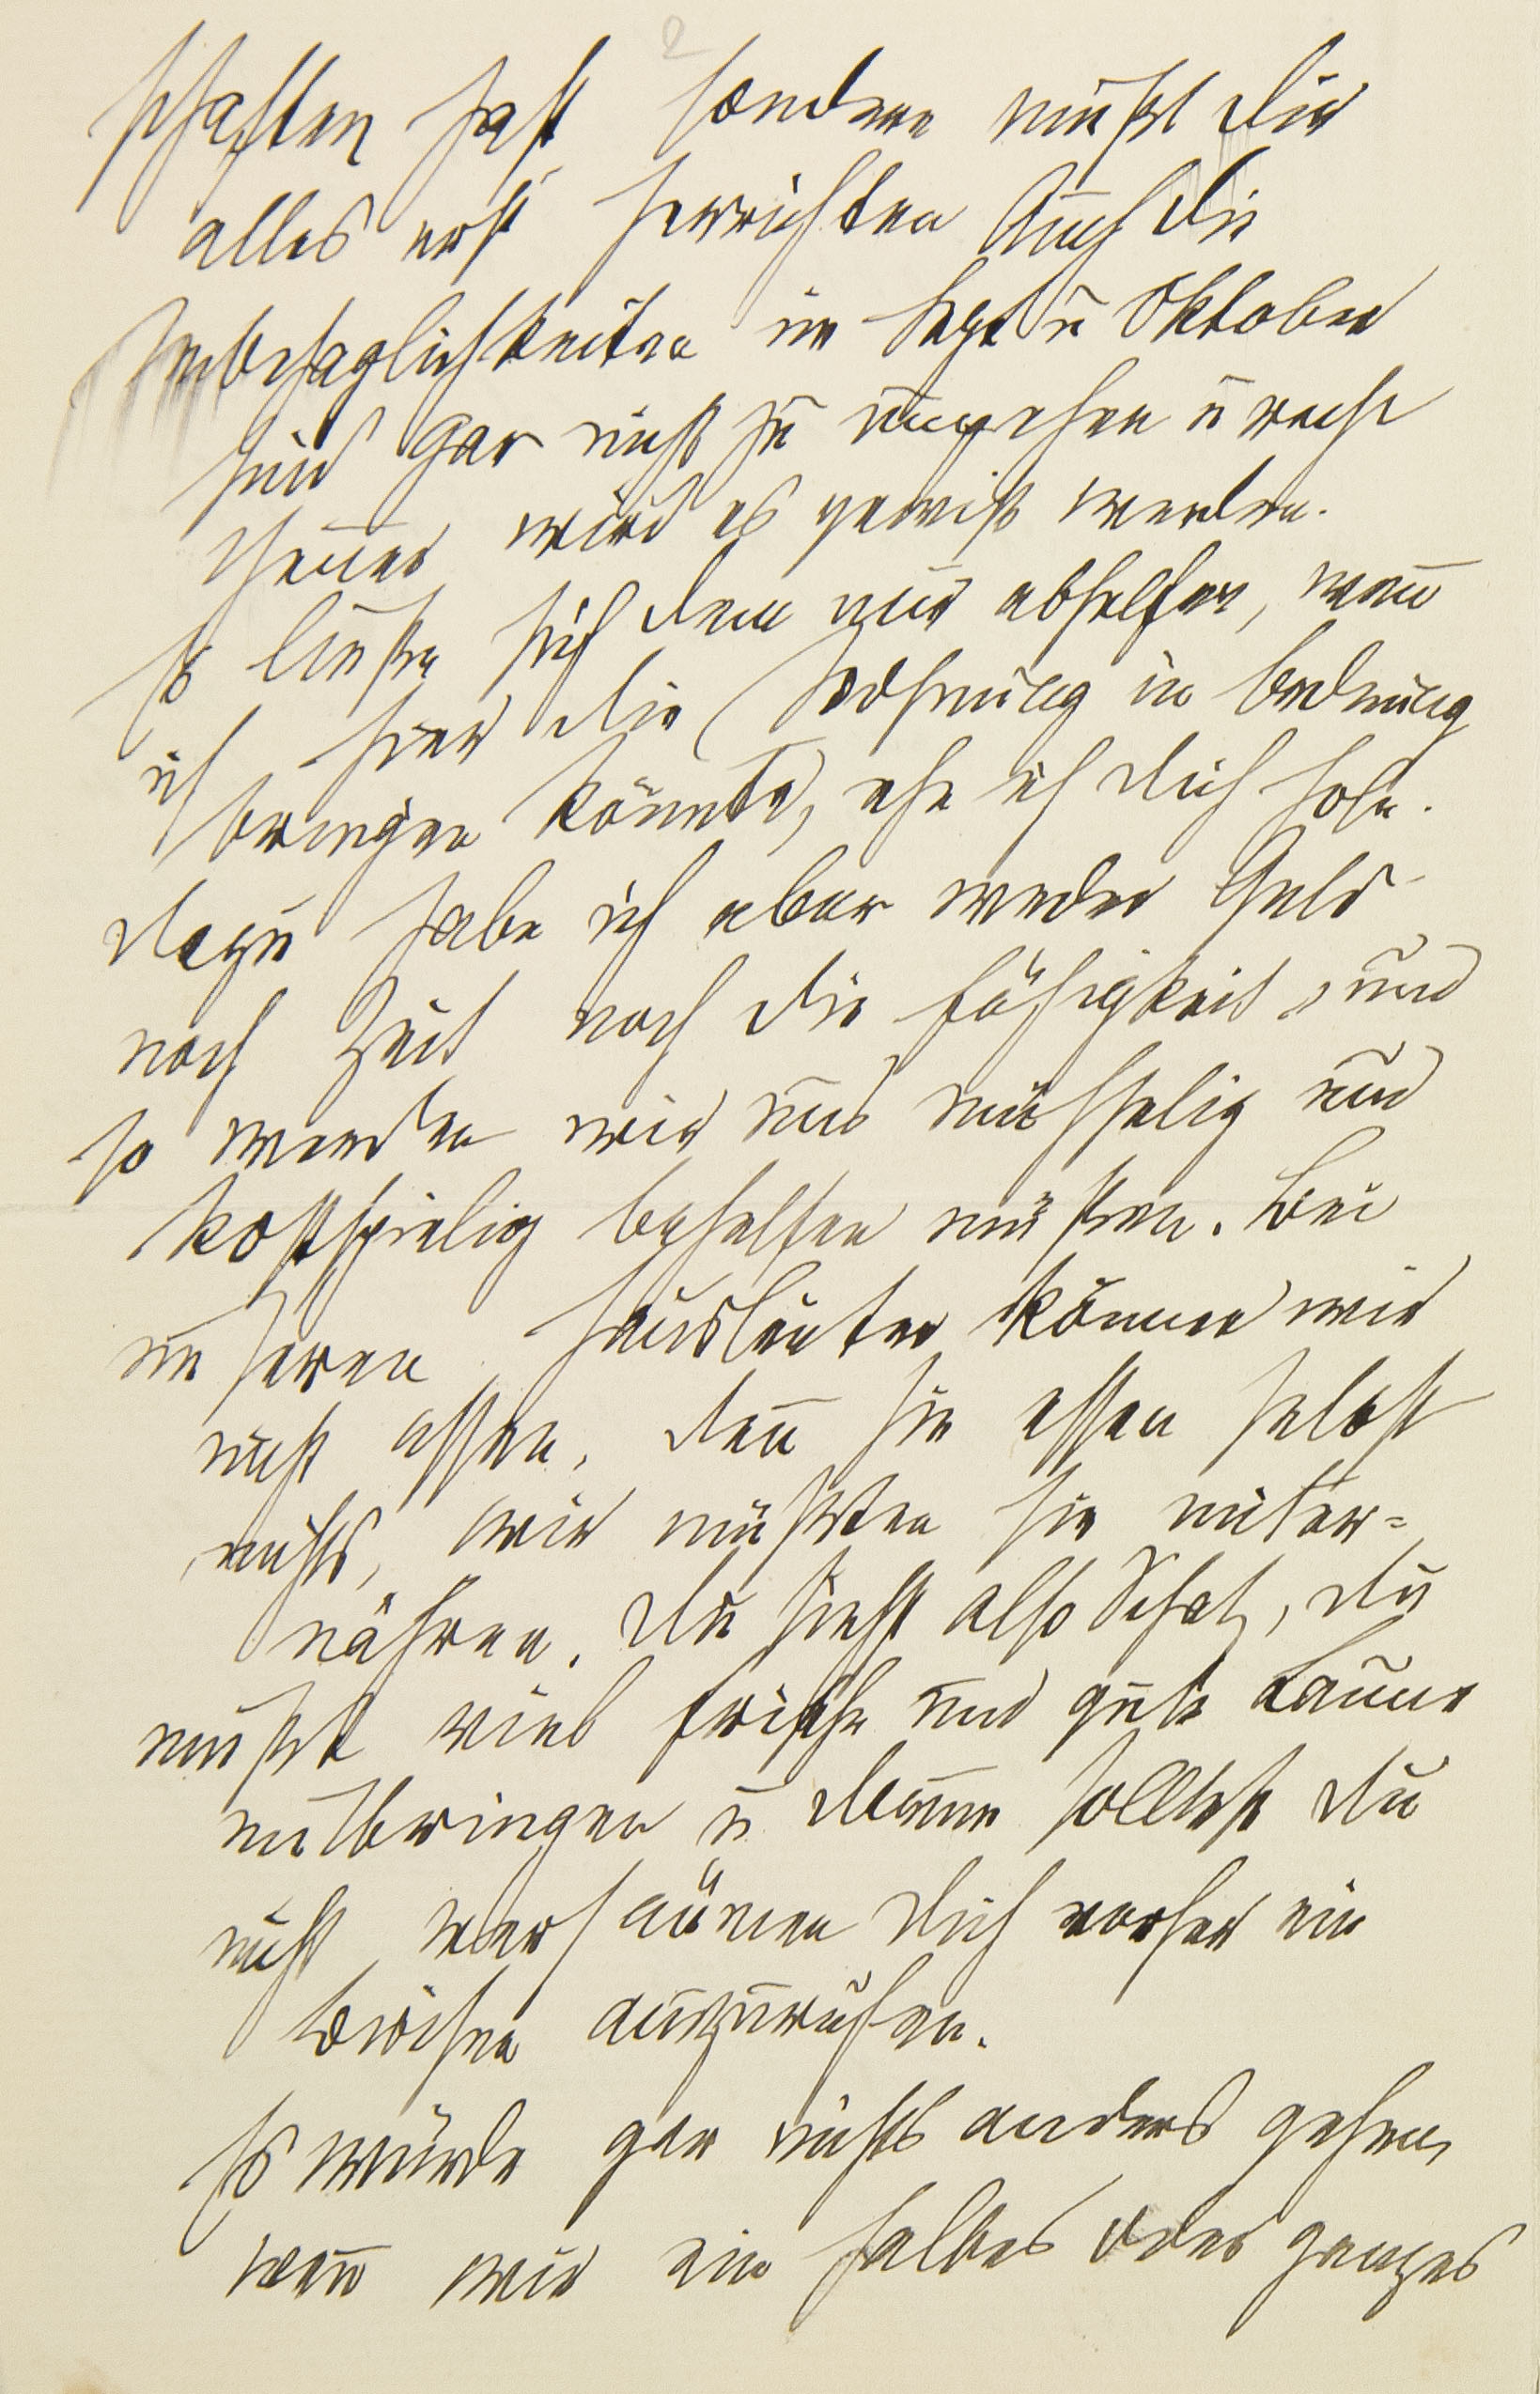 2
schaften hast sondern mußt Dir
alles erst herrichten Auch die
Unbehaglichkeiten im Sept u Oktober
sind gar nicht zu umgehen u recht
theuer wird es gewiß werden.
Es ließe sich dem nur abhelfen, wen̄
ich hier die Wohnung in Ordnung
bringen könnte, ehe ich Dich hole.
Dazu habe ich aber weder Geld
noch Zeit noch die Fähigkeit, und
so werden wir uns mühselig und
kostspielig behelfen müßen. Bei
unseren Hausleuten können wir
nicht essen, den̄ sie essen selbst
nichts, wir müßten sie miter=
nähren. Du siehst also Schatz, Du
mußt viel Frische und gute Laune
mitbringen u darum solltest Du
nicht versäumen Dich vorher ein
bischen auszuruhen.
Es würde gar nichts anders gehen,
wen̄ wir ein halbes oder ganzes